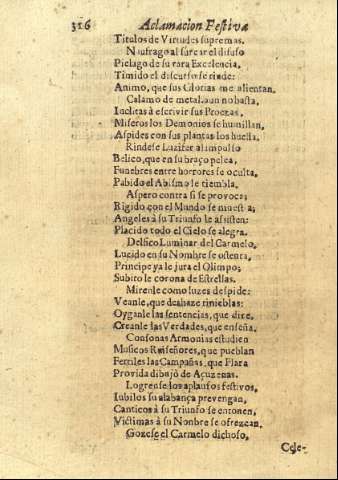 316 Aclamacion Festiva
Titulos de Virtudes supremas.
Naufrago al surcar el difuso
Pielago de su rara Excelencia,
Timido el discurso se rinde:
Animo, que sus Glorias me alientan.
Calamo de metal aun no basta,
Inclitas à escrivir sus Proezas,
Miseros los Demonios se humillan,
Aspides con sus plantas los huella.
Rindese Luzifer al impulso
Belico, que en su braço pelea,
Funebres entre horrores se oculta,
Pabido el Abismo le tiembla.
Aspero contra si se provoca;
Rigido con el Mundo se muestra;
Angeles à su Triunfo le assisten:
Placido todo el Cielo se alegra.
Delfico Luminar del Carmelo,
Lucido en su Nombre se ostenta,
Principe ya le jura el Olimpo;
Subito le corona de Estrellas.
Mirenle como luzes despide:
Veanle, que deshaze tinieblas:
Oyganle las sentencias, que dize,
Creanle las Verdades, que enseña.
Consonas Armonias estudien
Musicos Ruiseñores, que pueblan
Fertiles las Campañas, que Flora
Provida dibujò de Açuzenas.
Logrense los aplausos festivos,
Iubilos su alabança prevengan,
Canticos à su Triunfo se entonen,
Victimas à su Nonbre se ofrezcan.
Gozese el Carmelo dichoso,
Cele-